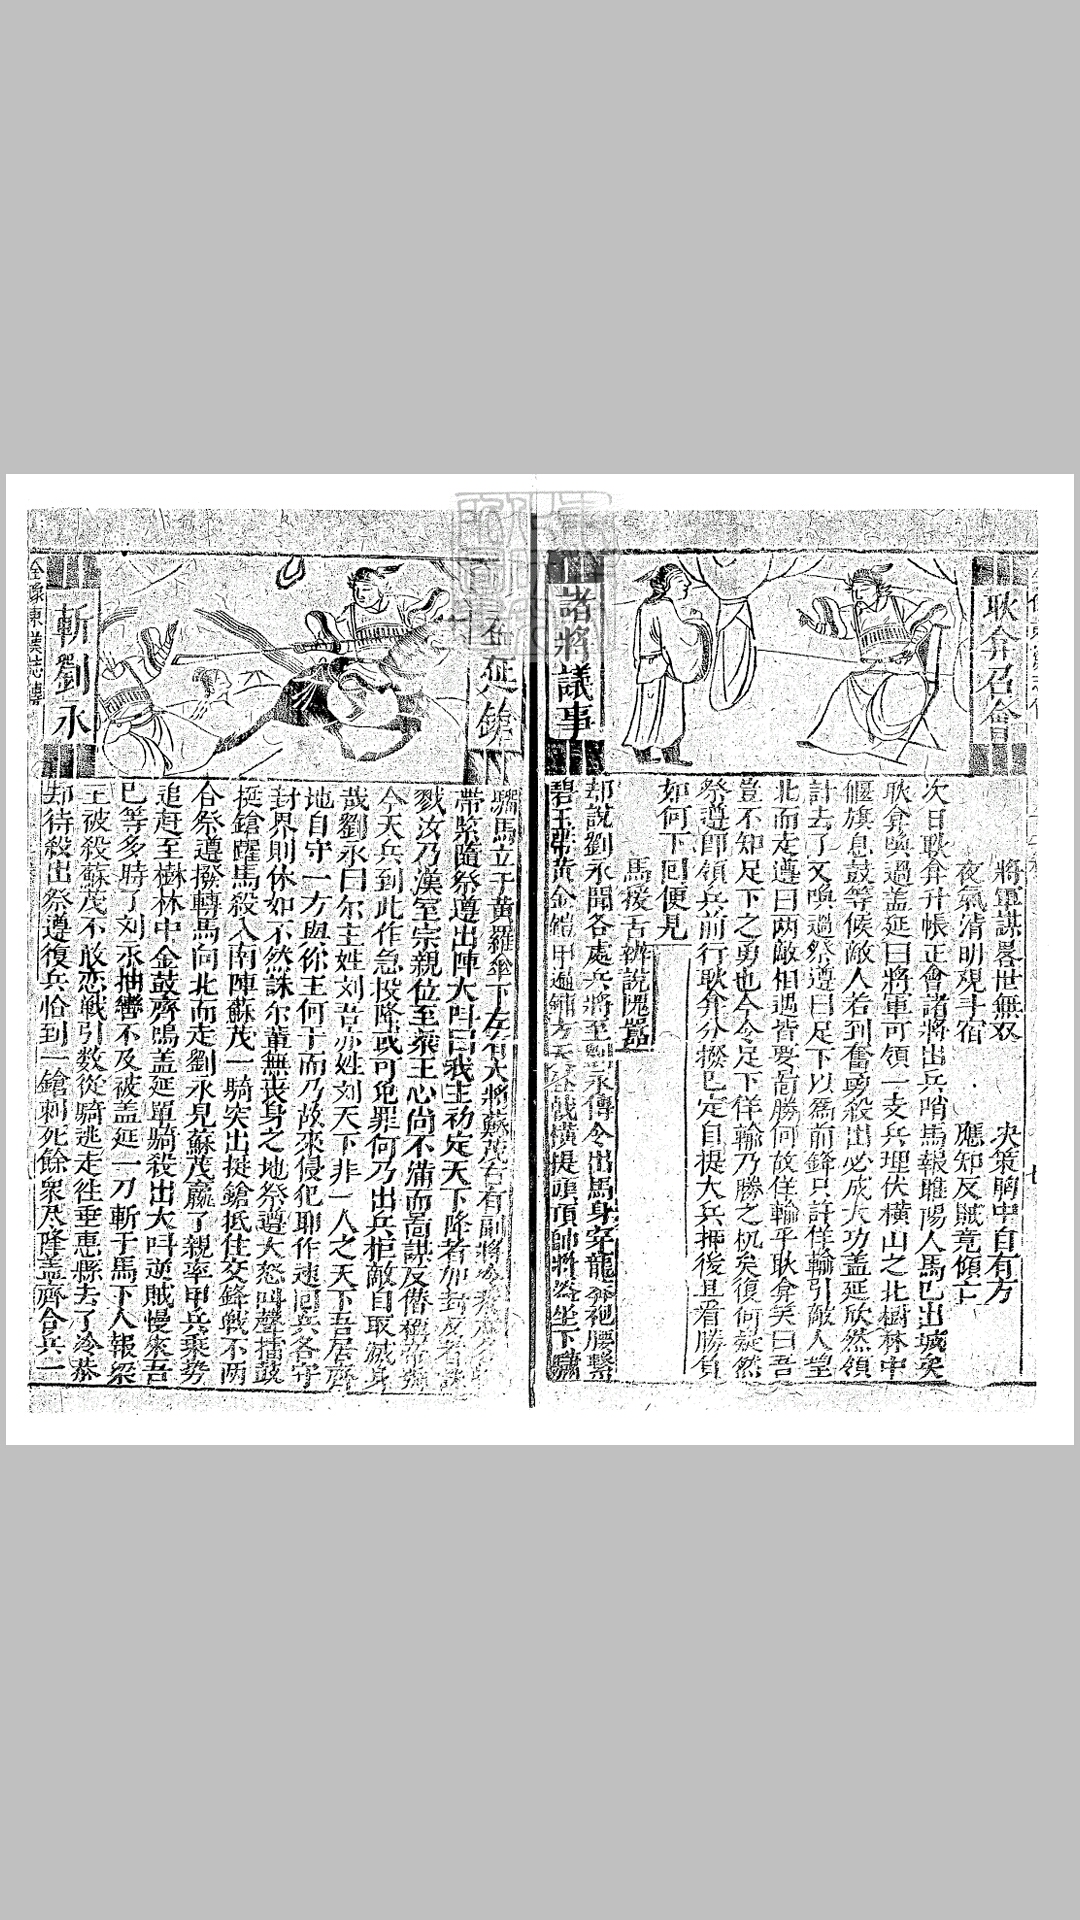 耿弇召會
諸將議事
將軍謀畧世無双　決策胸中自有方
夜氣清明覌斗宿　應知反賊竟傾亡
次日耿弇升帳正會諸將出兵哨馬報睢陽人馬已出城矣
耿弇喚過盖延曰將軍可領一支兵埋伏橫山之北樹林中
偃旗息鼓等候敵人若到奮勇殺出必成大功盖延欣然領
計去了又喚過祭遵曰足下以爲前鋒只許佯輸引敵人望
北而走遵曰两敵相遇皆要苟勝何故佯輸乎耿弇笑曰吾
豈不知足下之勇也今令足下佯輸乃勝之机矣復何疑然
祭遵即領兵前行耿弇分撥已定自提大兵押後且看勝負
如何下回便見
馬援舌辨說隗囂
却說劉永聞各處兵將至 永傳令出馬身穿龍 袍腰繫
碧玉 黃金鎧甲 方天 戟橫提頭頂帥 坐下
延鎗
斬劉永
全像東漢志傳
馬立于黃羅傘下左有大將蘇茂右有副將
帶緊隨祭遵出陣大叫曰我主初定天下降者加封反者
戮汝乃漢室宗親位至梁王心尚不滿而 謀反僭
今天兵到此作急投降或可免罪何乃出兵拒敵自取滅身
哉劉永曰尔主姓刘吾亦姓刘天下非一人之天下吾居齊
地自守一方與你王何干而乃故來侵犯耶作速回兵各守
封界則休如不然誅尔輩無喪身之地祭遵大怒叫聲擂鼓
挺鎗躍馬殺入南陣蘇茂一騎突出挺鎗抵住交鋒戰不两
合祭遵撥轉馬向北而走劉永見蘇茂贏了親率甲兵乘势
追赶至樹林中金鼓齊鳴盖延單騎殺出大叫逆賊慢來吾
已等多時了刘永抽轡不及被盖延一刀斬于馬下人報梁
王被殺蘇茂不敢恋戰引数從騎逃走徃垂惠縣去了
却待殺出祭遵復兵恰到一鎗刺死餘衆尽降盖齊合兵一